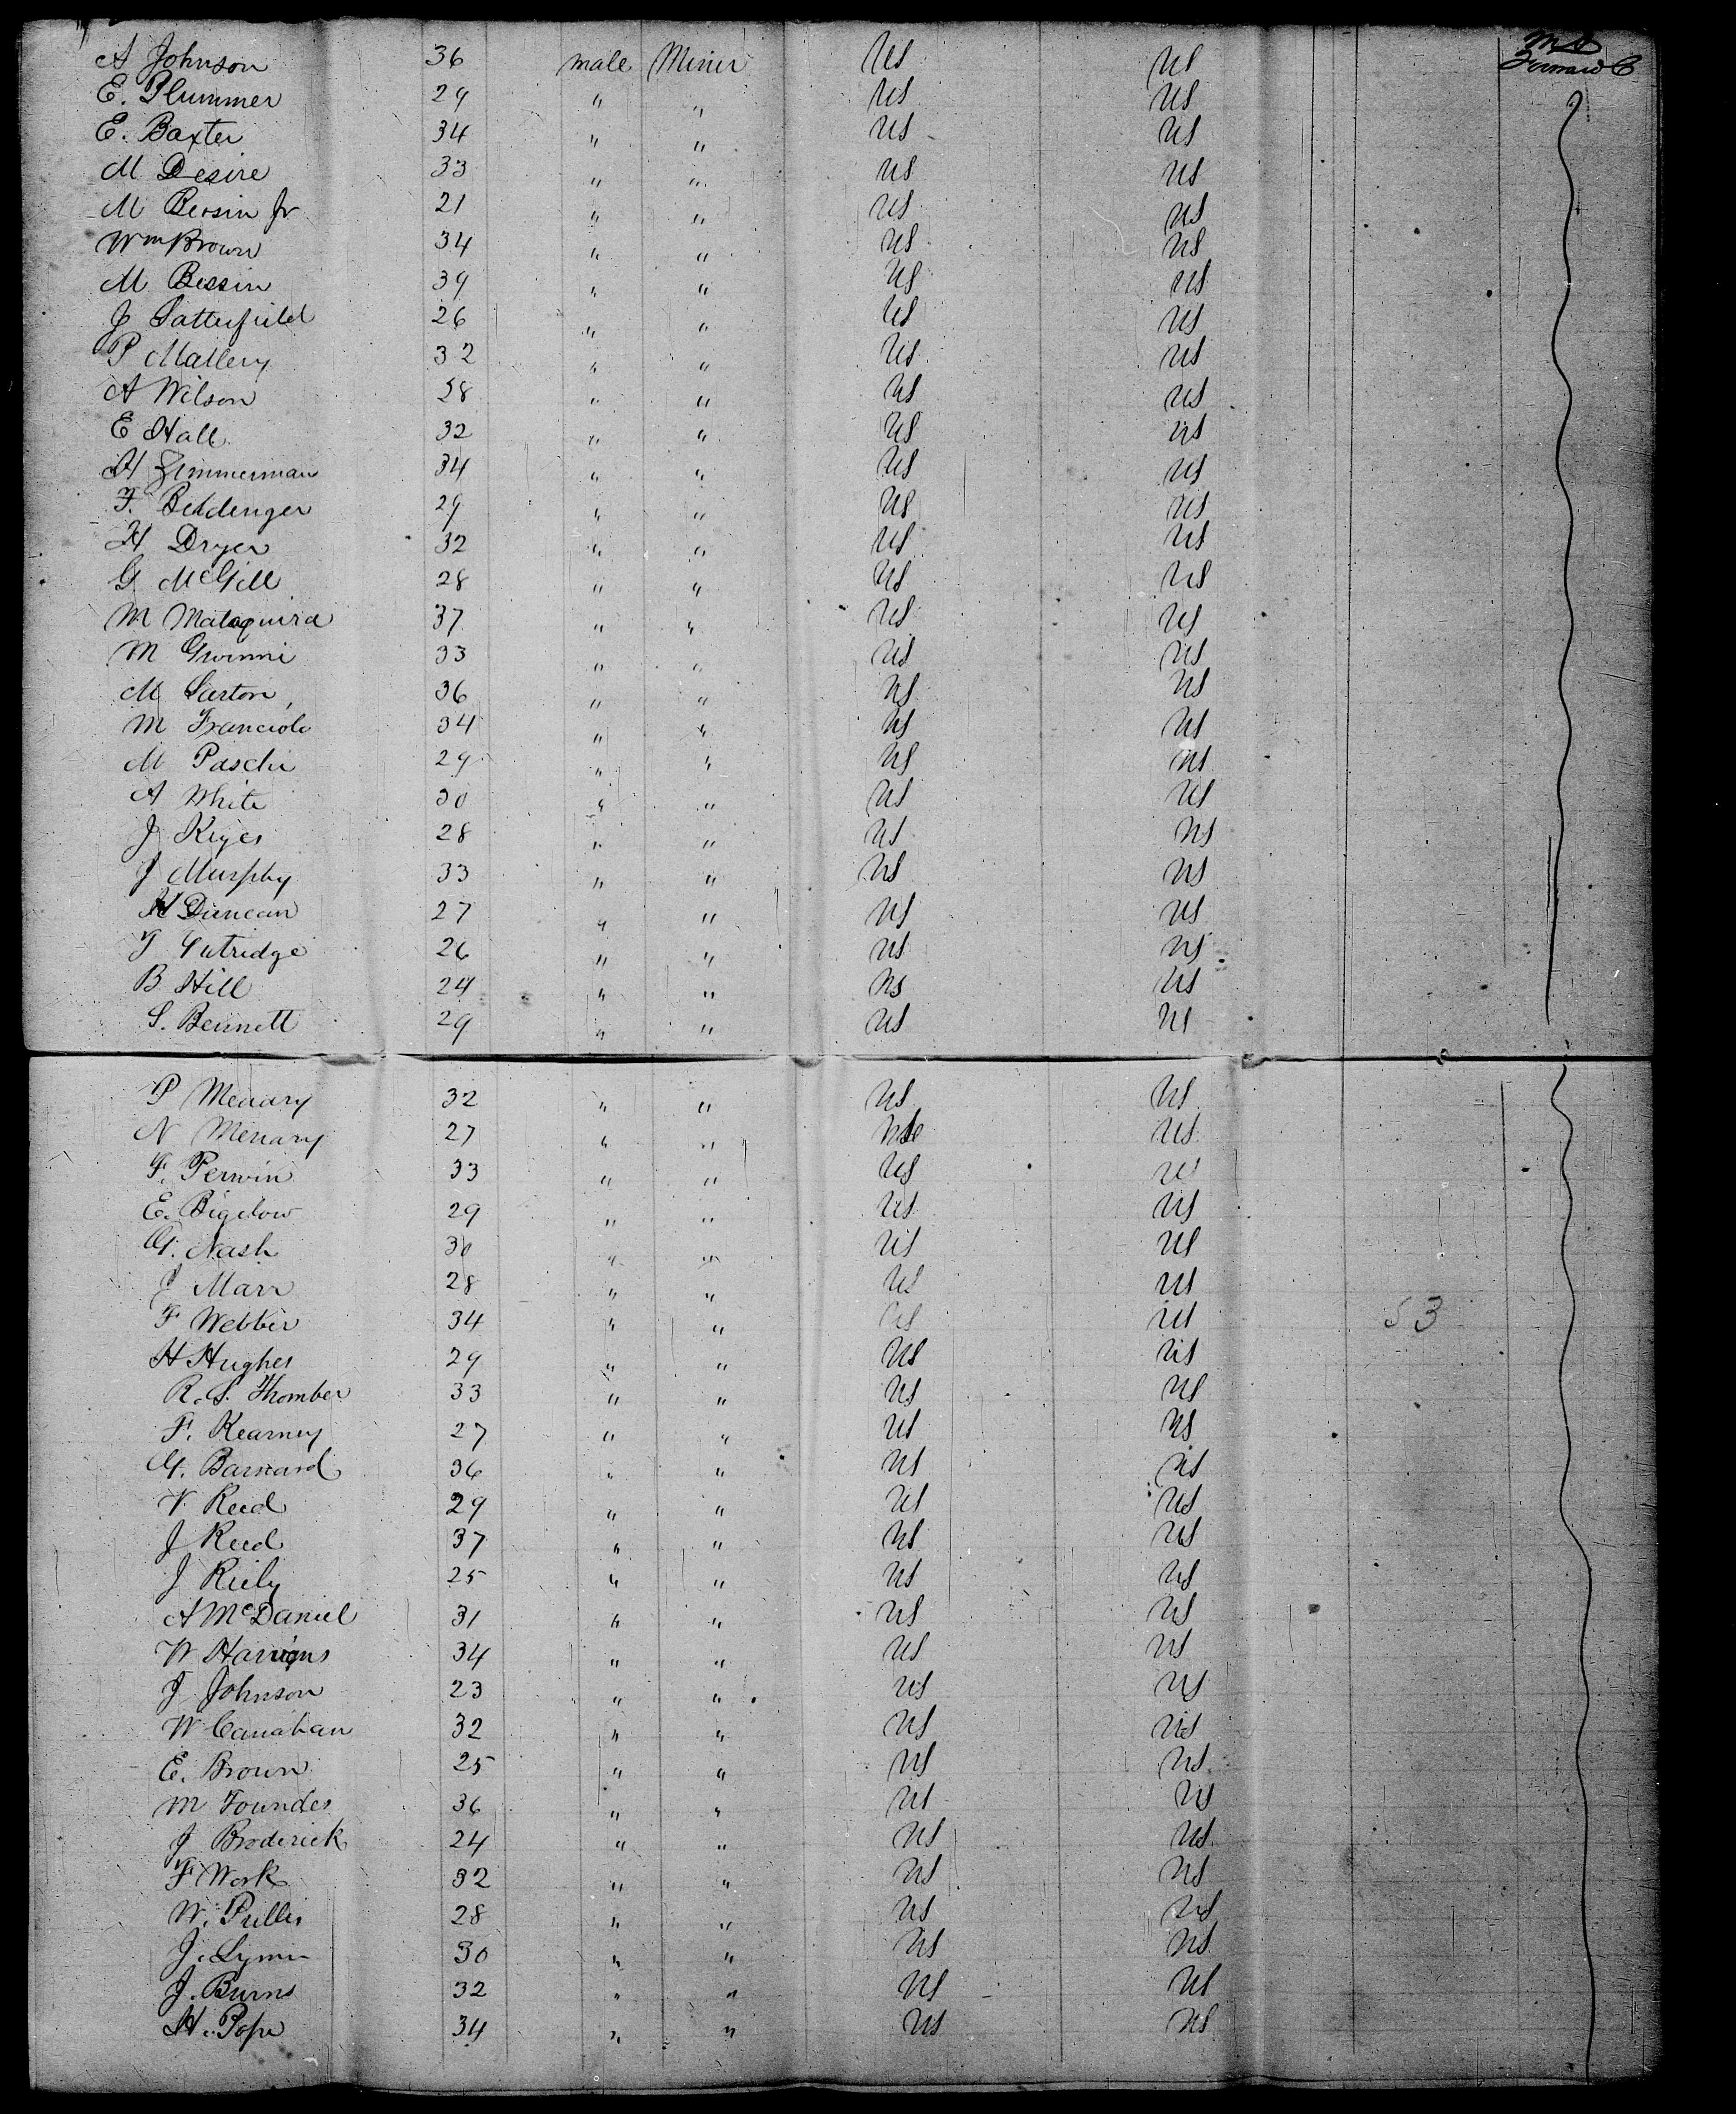 A Johnson 36 male Miner US US
E. Plummer 29 " " US US
E. Baxter 34 " " US US
M Desire 33 " " US US
M Bessin Jr 21 " " US US
Wm Brown 34 " " US US
M Bessin 39 " " US US
J Satterfield 26 " " US US
P Mallery 32 " " US US
A Wilson 28 " " US US
E Hall 32 " " US US
H Zimmerman 34 " " US US
F. Beldenger 29 " " US US
H Dryer 32 " " US US
G McGill 28 " " US US
M 37 " " US US
M Gwinni 33 " " US US
M Sarton 36 " " US US
M Franciole 34 " " US US
M Paschi 29 " " US US
A White 30 " " US US
J Keyes 28 " " US US
J Murphy 33 " " US US
H Duncan 27 " " US US
T Gutridge 26 " " US US
B Hill 24 " " US US
S. Bennett 29 " " US US
P Menary 32 " " US US
N Menary 27 " " US
F. Perwin 33 " " US US
E. Bigelow 29 " " US US
G. Nash 30 " " US US
J Marr 28 " " US US
F Webber 34 " " US US 53
H Hughes 29 " " US US
R. S. Thomber 33 " " US US
F. Kearney 27 " " US US
G. Barnard 36 " " US US
V Reed 29 " " US US
J Reed 37 " " US US
J Riely 25 " " US US
A McDaniel 31 " " US US
W 34 " " US US
J Johnson 23 " " US US
W Canahan 32 " " US US
E. Brown 25 " " US US
M Foundes 36 " " US US
J Broderick 24 " " US US
F Work 32 " " US US
W. Pullis 28 " " US US
J. Lynn 30 " " US US
J. Burns 32 " " US US
H. Pope 34 " " US US